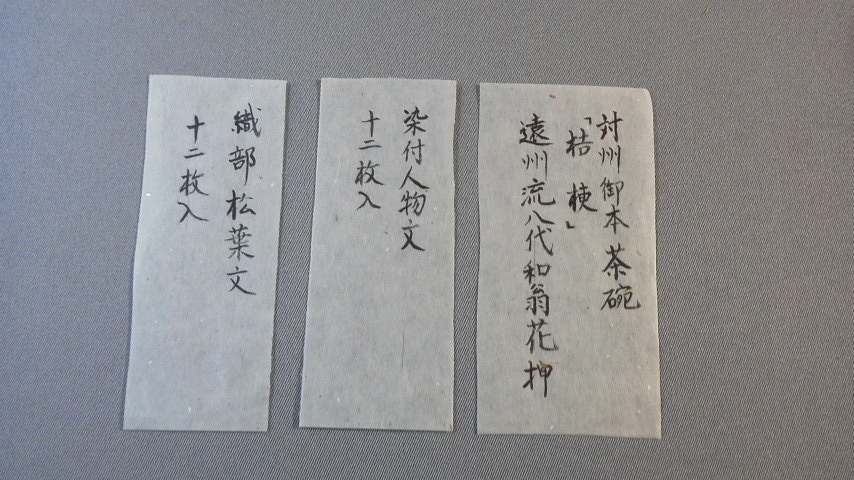 対州御本茶碗
「桔梗」
遠州流八代和翁花押
染付人物文
十二枚入
織部松葉文
十二枚入